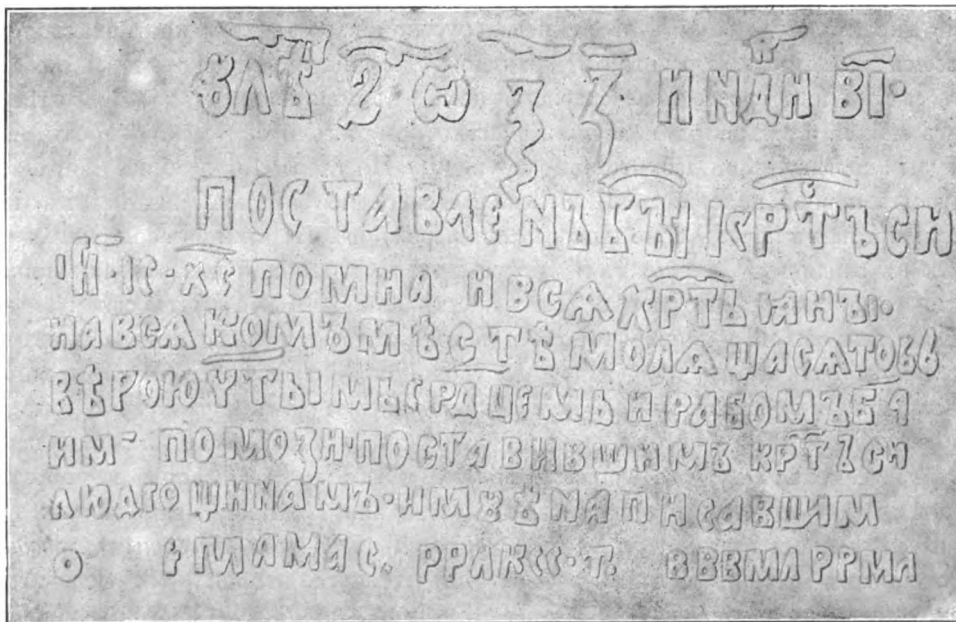 ВЛѢ҃ ҂Ѕ҃·Ѡ҃ Ѯ҃ З҃· ИНДН ВІ҃·
ПОСТАВЛЕМЪ БЪІ҃ КРⷭ҇ТЪ СИ
·Г҃И·ІС·ХС҃ ПОМНЛ И ВСѦ ХРТ҃ЬꙖНЪІ·
НА ВСѦКОМЪ МѢСТѢ МОЛѦЩАСѦ ТОБѢ
ВѢРОЮ ЧТЪІМЬ СРДЦЕМЬ И РАБОМЪ Б҃А
ИМ ПОМОЗИ·ПОСТАВИВШИМЪ КРТ҃Ъ СИ
ЛЮДГОЩИЧАМЪ·И МНѢ НАПИСАВШИМ
О